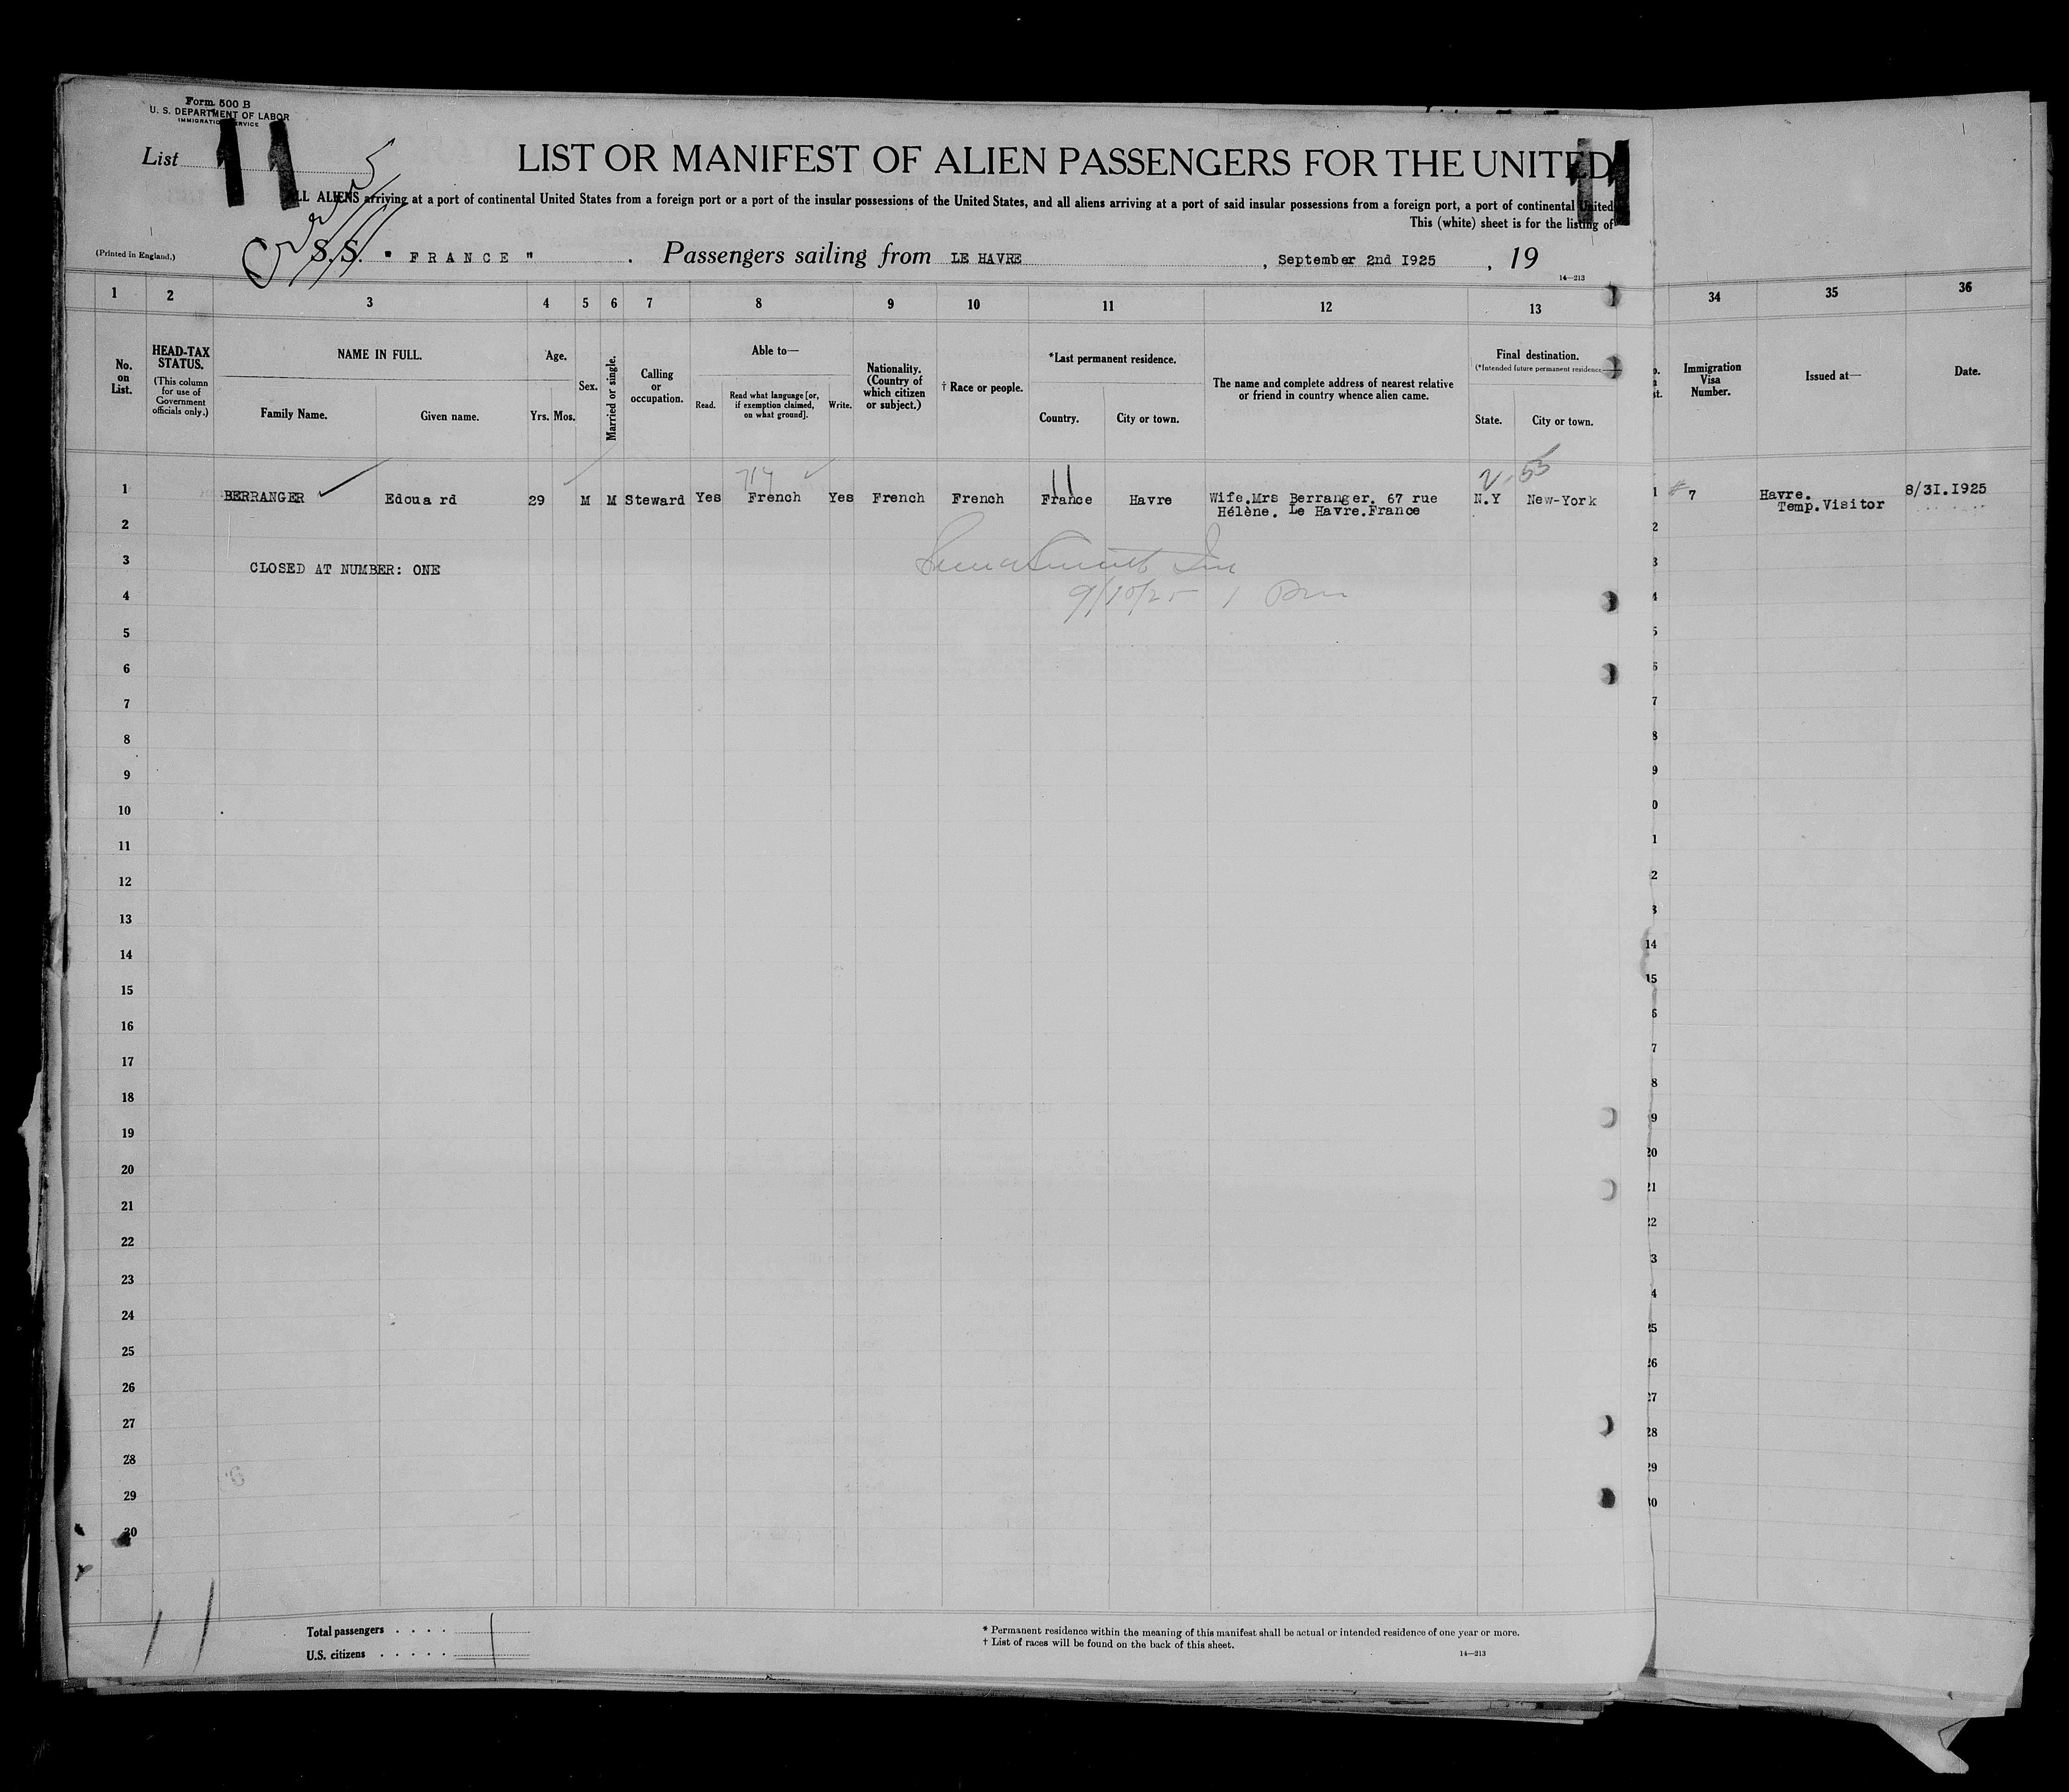 Form 500 B
U. S. DEPARTMENT OF LABOR
IMMIGRATION SERVICE
List 11
LIST OR MANIFEST OF ALIEN PASSENGERS FOR THE UNITED
ALL ALIENS arriving at a port of continental United States from a foreign port or a port of the insular possessions of the United States, and all aliens arriving at a port of said insular possessions from a foreign port, a port of continental United
This (white) sheet is for the listing of
(Printed in England.)
S.S. " FRANCE " . Passengers sailing from LE HAVRE , September 2nd 1925 , 19
14—213
1 2 3 4 5 6 7 8 9 10 11 12 13 34 35 36
No. on List.
HEAD-TAX STATUS.
(This column for use of Government officials only.)
NAME IN FULL.
Family Name. Given name.
Age.
Yrs. Mos.
Sex.
Married or single.
Calling or occupation.
Able to—
Read. Read what language [or, if exemption claimed, on what ground]. Write.
Nationality. (Country of which citizen or subject.)
† Race or people.
*Last permanent residence.
Country. City or town.
The name and complete address of nearest relative or friend in country whence alien came.
Final destination.
(*Intended future permanent residence
State. City or town.
Immigration Visa Number.
Issued at—
Date.
1 BERRANGER Edoua rd 29 M M Steward Yes French Yes French French France Havre Wife.Mrs Berranger. 67 rue N.Y New-York 1 # 7 Havre. 8/3I.I925
Hélène. Le Havre.France Temp.Visitor
2
3 CLOSED AT NUMBER: ONE
9/10/25
4
5
6
7
8
9
10
11
12
13
14
15
16
17
18
19
20
21
22
23
24
25
26
27
28
29
30
11
Total passengers . . . . 1
U.S. citizens . . . . .
* Permanent residence within the meaning of this manifest shall be actual or intended residence of one year or more.
† List of races will be found on the back of this sheet.
14—213